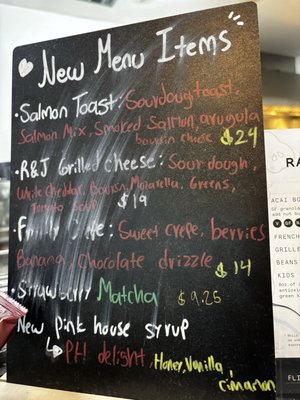 New Menu Items
• Salmon Toast: Sourdough toast,
Salmon Mix, Smoked Salmon arugula
boursin chive $24
• R&J Grilled Cheese: Sour dough,
White Cheddar, Boursn, Mozarella, Greens,
Tomato soup $19
Sweet crepe, berries
Banana, Chocolate drizzle $14
• Strawberry Matcha $9.25
New pink house syrup
PH! delight, Honey, Vanilla,
cinnamon
RA
ACAI BO
FRENCH
GRILLE
BEANS
KIDS
FLI